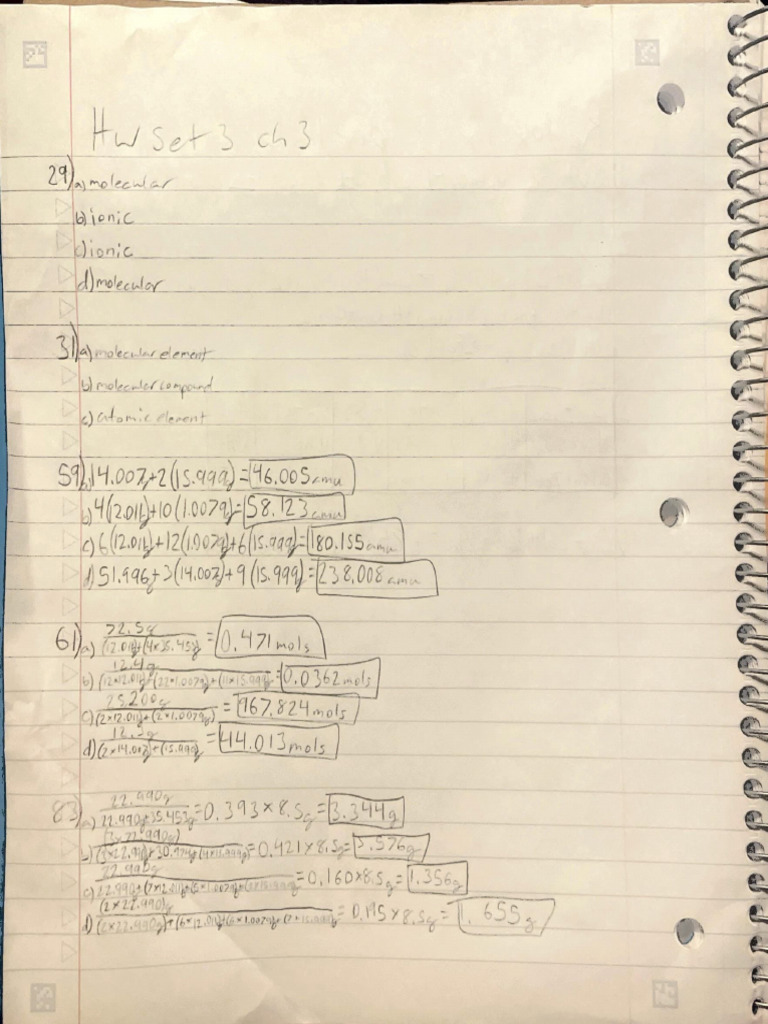 HW Set 3 ch 3
29) a) molecular
b) ionic
c) ionic
d) molecular
31) a) molecular element
b) molecular compound
c) atomic element
59) a) 14.007g+2(15.999g)=46.005amu
b) 4(12.011g)+10(1.007g)=58.123amu
c) 6(12.011g)+12(1.007g)+6(15.999g)=180.155amu
d) 51.996g+3(14.007g)+9(15.999g)=238.008amu
61) a) 72.5g/(12.011g)+(4×35.453g) = 0.471mols
b) 12.4g/(12×12.011g)+(22×1.007g)+(11×15.999g) = 0.0362mols
c) 25.200g/(2×12.011g)+(2×1.0079g) = 967.824mols
d) 12.3g/(2×14.007g)+(15.999g) = 44.013mols
83) a) 22.990g/22.990g+35.453g = 0.393×8.5g = 3.344g
b) (3×22.990g)/(3×22.99g)+30.974g+(4×15.999g) = 0.421×8.5g = 3.576g
c) 22.990g/22.990g+(7×12.011g) = 0.160×8.5g = 1.356g
d) (2×22.990g)/(2×22.990g)+(6×12.011g)+(6×1.0079g)+(7×15.999g) = 0.195×8.5g = 1.655g